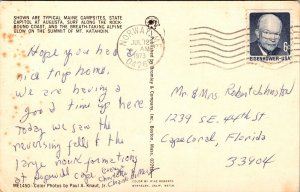 SHOWN ARE TYPICAL MAINE CAMPSITES, STATE
CAPITOL AT AUGUSTA, SURF ALONG THE ROCK-
BOUND COAST, AND THE BREATH-TAKING ALPINE
GLOW ON THE SUMMIT OF MT. KATAHDIN.
Hope you had
nice trip home.
we are having a
good time up here
Today we saw the
reversing falls & the
large rock formations
at Hopewell cape
ME1450 - Color Photos by Paul A. Knaut, Jr.
NORWAY, ME
JUL 12
AM
1973
EISENHOWER·USA
Mr & Mrs. Robert Johnston
1239 S.E. 44th St
Cape Coral, Florida
33904